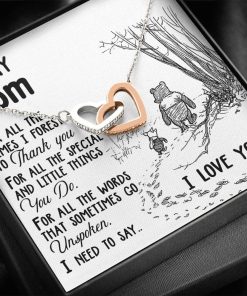 MY
om
FOR ALL THE
TIMES I FORGET
TO Thank you
FOR ALL THE SPECIAL
AND LITTLE THINGS
YOU DO.
FOR ALL THE WORDS
THAT SOMETIMES GO
UNSPOKEN.
I NEED TO SAY..
I LOVE YO